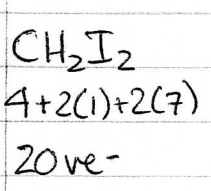 CH₂I₂
4+2(1)+2(7)
20ve-